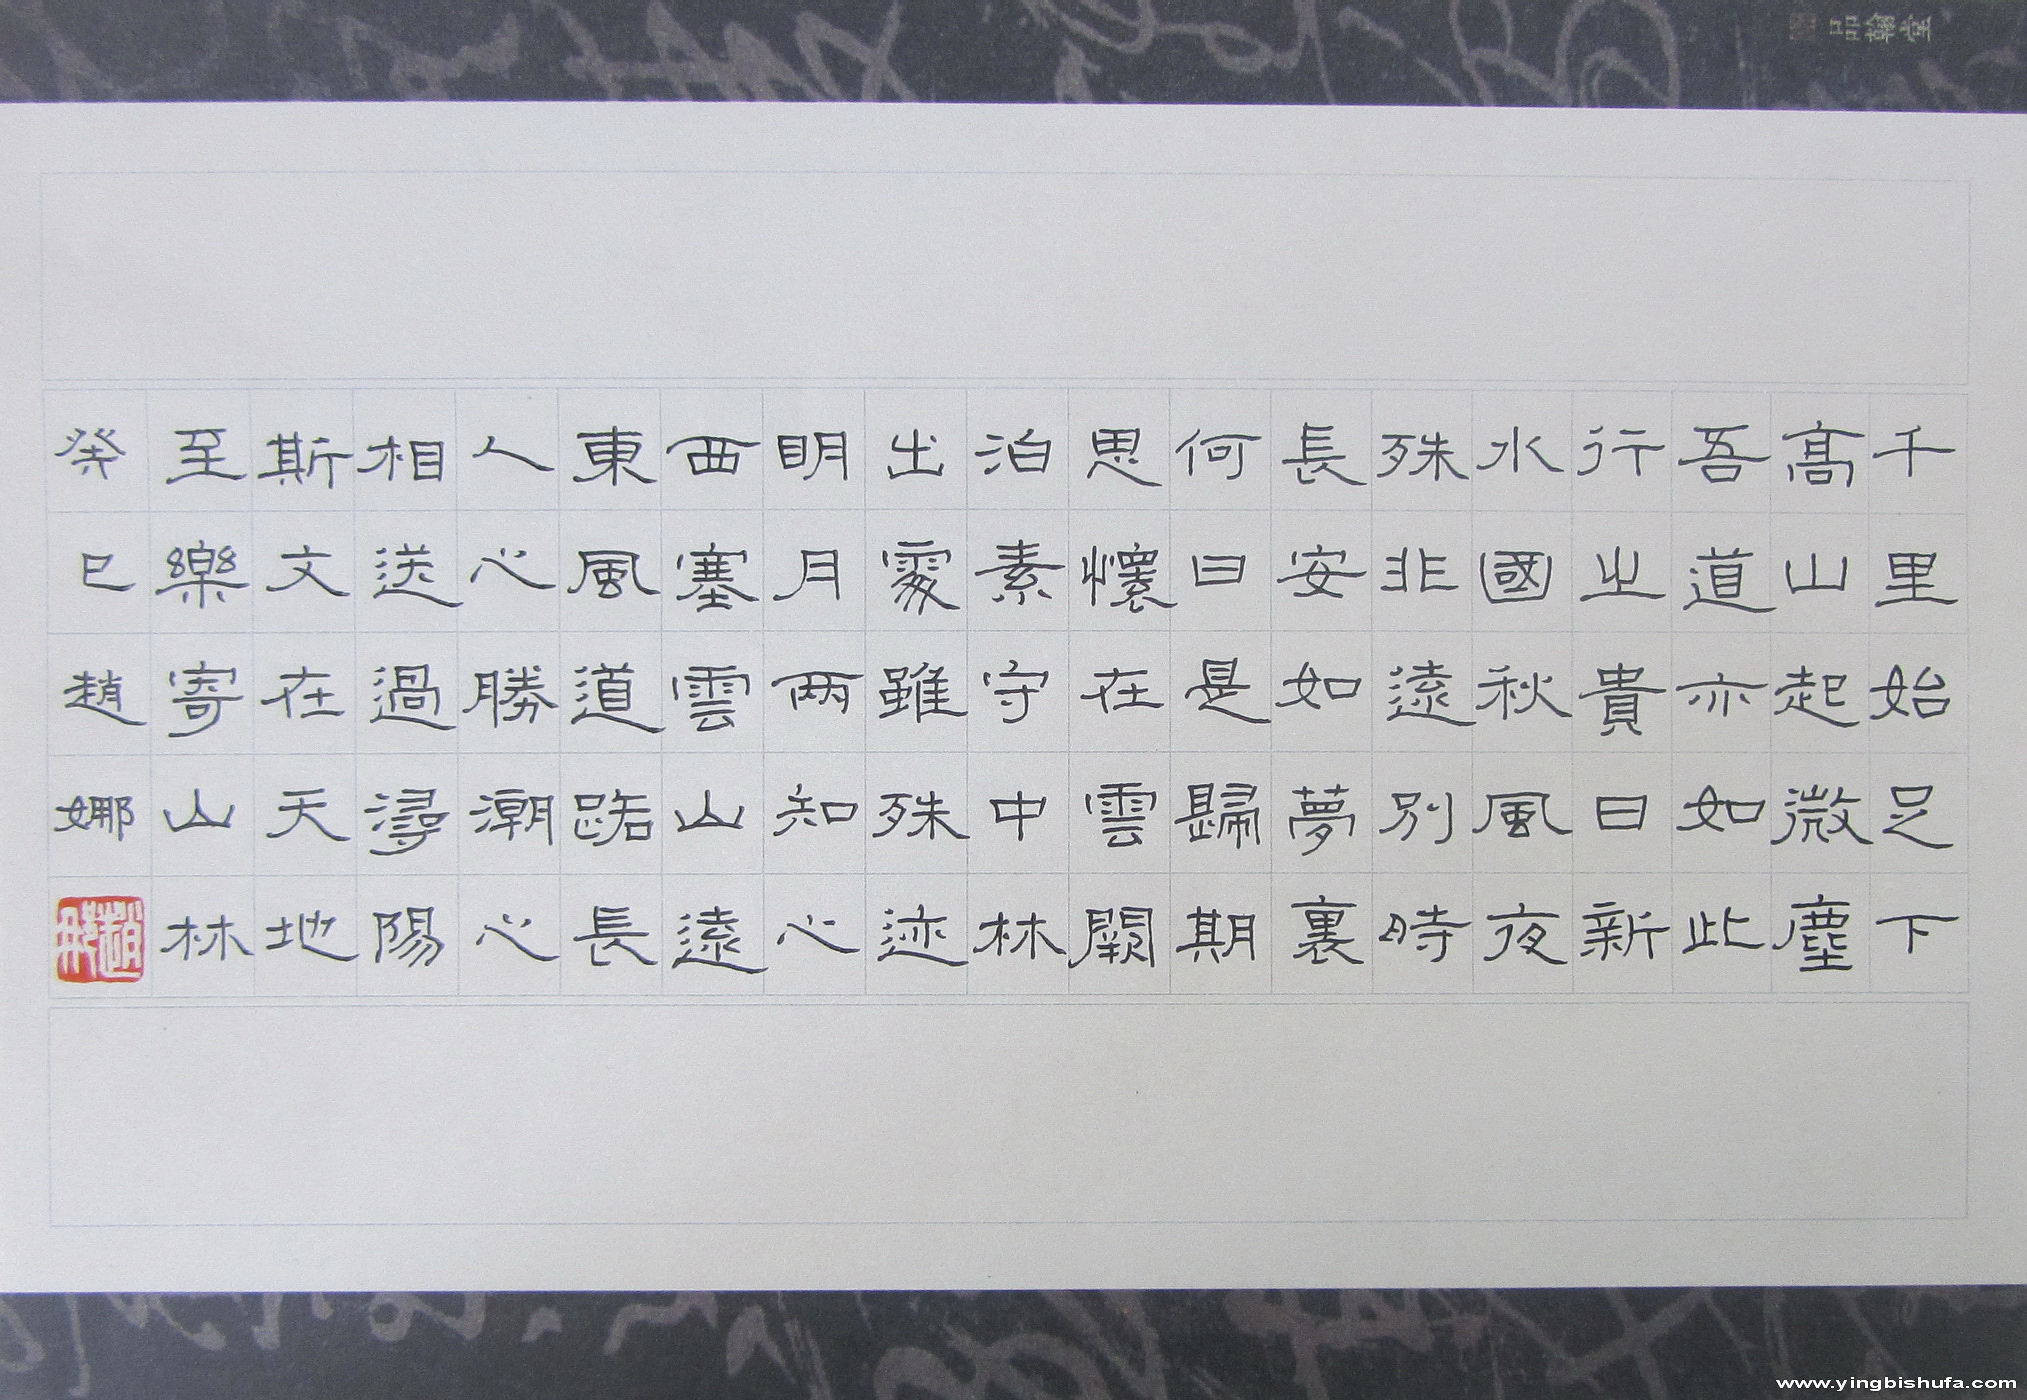 千里始足下
高山起微塵
吾道亦如此
行之貴日新
水國秋風夜
殊非遠別時
長安如夢裏
何日是歸期
思懷在雲闕
泊素守中林
出處雖殊迹
明月兩知心
西塞雲山遠
東風道路長
人心勝潮心
相送過潯陽
斯文在天地
至樂寄山林
癸巳趙娜
品翰堂
www.yingbishufa.com